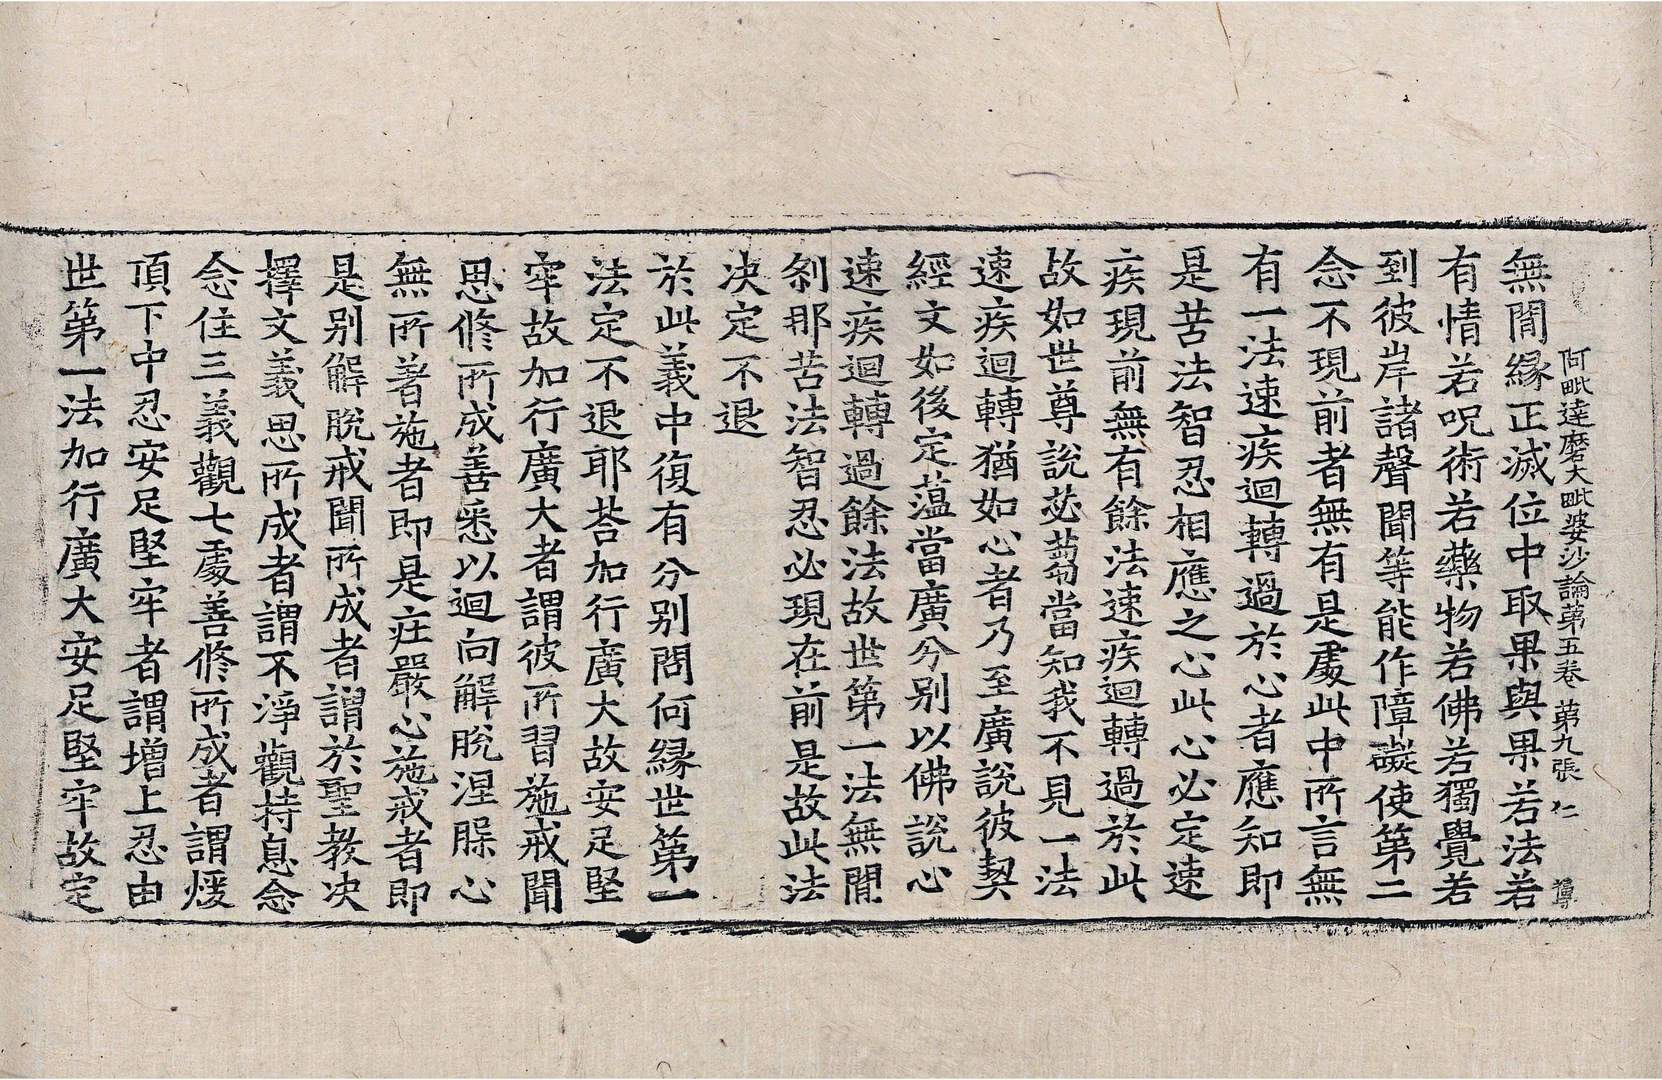 阿毗達磨大毗婆沙論第五卷 第九張 仁
無閒緣正滅位中取果與果若法若
有情若呪術若藥物若佛若獨覺若
到彼岸諸聲聞等能作障礙使第二
念不現前者無有是處此中所言無
有一法速疾迴轉過於心者應知即
是苦法智忍相應之心此心必定速
疾現前無有餘法速疾迴轉過於此
故如世尊說苾芻當知我不見一法
速疾迴轉猶如心者乃至廣說彼契
經文如後定蘊當廣分別以佛說心
速疾迴轉過餘法故世第一法無閒
剎那苦法智忍必現在前是故此法
决定不退
於此義中復有分別問何緣世第一
法定不退耶荅加行廣大故安足堅
牢故加行廣大者謂彼所習施戒聞
思修所成善悉以迴向解脫涅槃心
無所著施者即是莊嚴心施戒者即
是別解脫戒聞所成者謂於聖教决
擇文義思所成者謂不淨觀持息念
念住三義觀七處善修所成者謂煖
頂下中忍安足堅牢者謂增上忍由
世第一法加行廣大安足堅牢故定